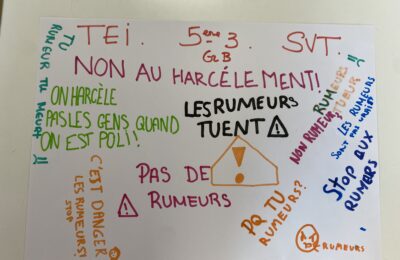 TEI. 5ème 3 SVT.
G2 B
NON AU HARCÉLEMENT!
TU
RUMEUR TU MEURT !!
ON HARCÈLE
PAS LES GENS QUAND
ON EST POLI!
LES RUMEURS
TUENT !
RUMEURS
TUEUR
NON RUMEUR
LES RUMEURS
SONT PAS
STOP AUX
RUMERS
C'EST DANGER
LES RUMEURS!
STOP
PAS DE
RUMEURS
!
!
PQ TU
RUMEURS?
RUMEURS